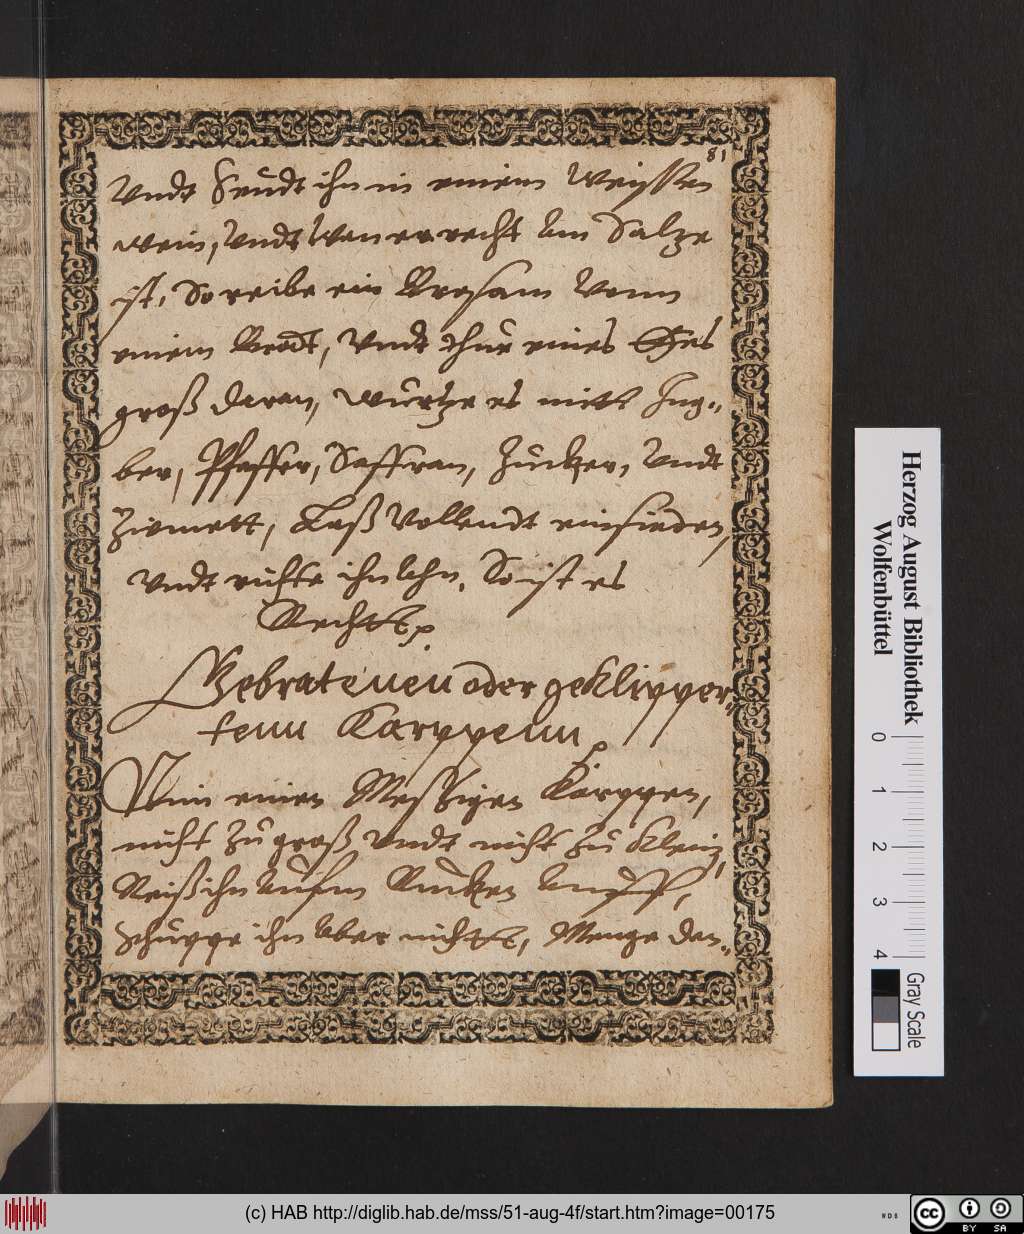 81
Vndt Seudt ihn in einem Weyssen
wein, Vndt Wen er recht Im Saltze
ist, So reibe ein Brosam Vonn
einem Brodt, Vndt thue eines Eyes
groß daran, würtze es mitt Ing-
ber, Pfeffer, Saffran, Zucker, Vndt
Zimett, Laß Vollendt einsieden,
Vndt richte ihn ahn, So ist es
Rechtt.
Gebratenen oder geklipper-
tenn Karppenn.
Nim einen Messigen Karppen,
nicht zu groß Vndt nicht zu klein,
Reiß ihn Aufm Rucken auff,
Schuppe ihn Aber nichtt, Menge den-
Herzog August Bibliothek
Wolfenbüttel
0 1 2 3 4
Gray Scale
(c) HAB http://diglib.hab.de/mss/51-aug-4f/start.htm?image=00175
WDB
cc BY SA